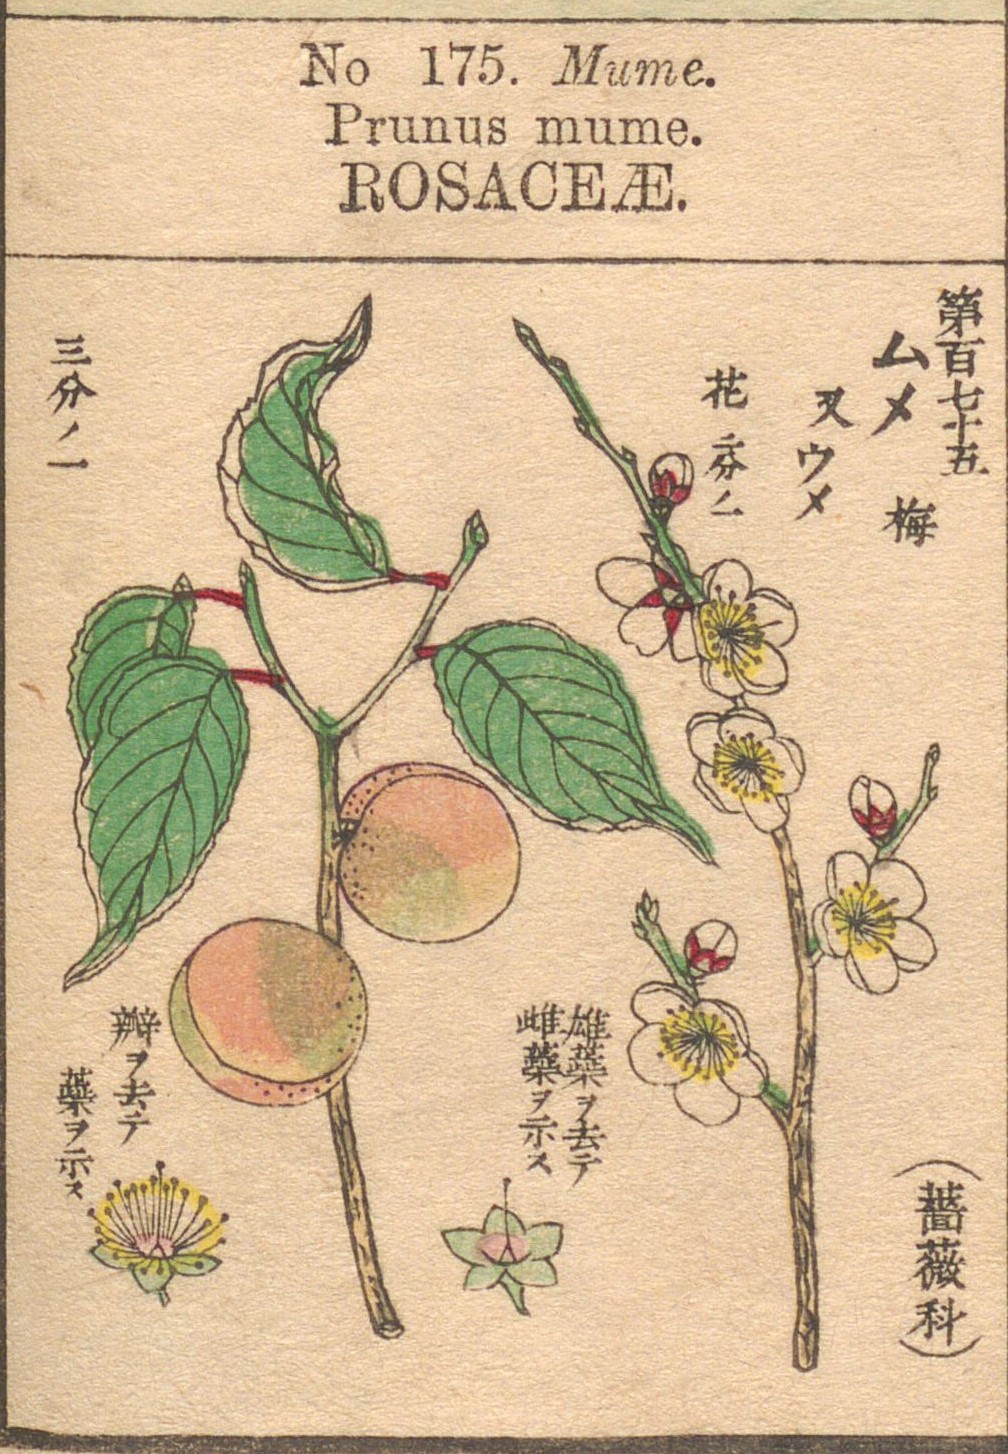 No 175. Mume.
Prunus mume.
ROSACEÆ.
第百七十五
ムメ 梅
又ウメ
花二分ノ一
三分ノ一
雄蘂ヲ去テ
雌蘂ヲ示ス
瓣ヲ去テ
蘂ヲ示ス
(薔薇科)